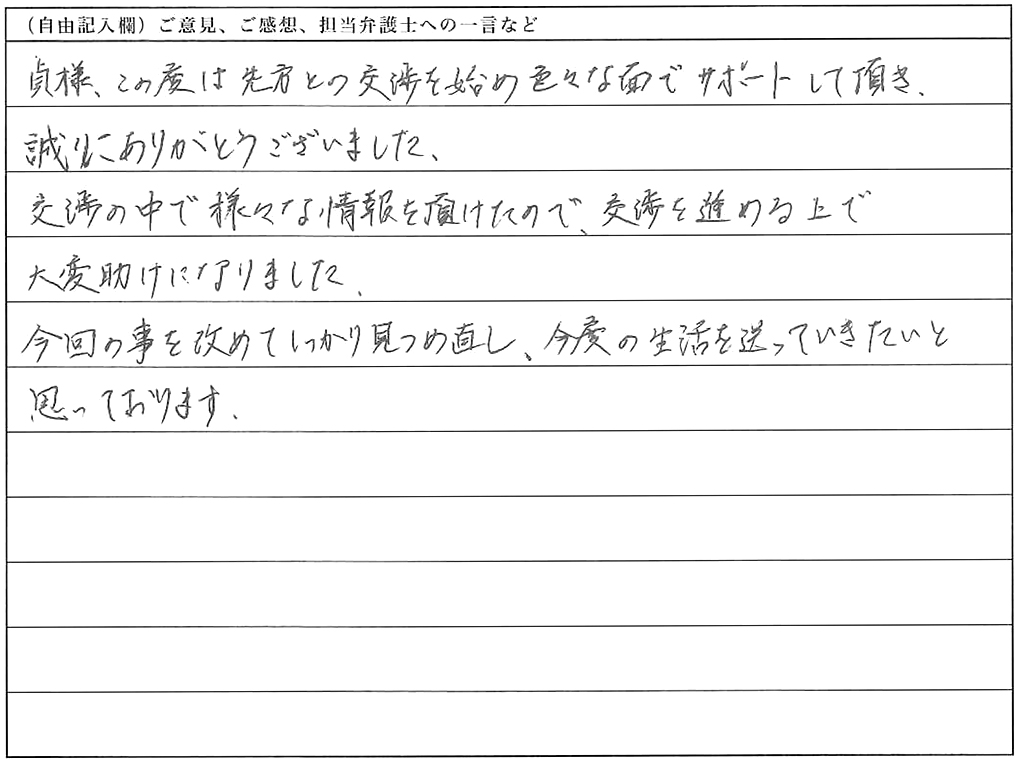 (自由記入欄)ご意見、ご感想、担当弁護士への一言など
貞様、この度は先方との交渉を始め色々な面でサポートして頂き、
誠にありがとうございました、
交渉の中で様々な情報を頂けたので、交渉を進める上で
大変助けになりました、
今回の事を改めてしっかり見つめ直し、今度の生活を送っていきたいと
思っております、